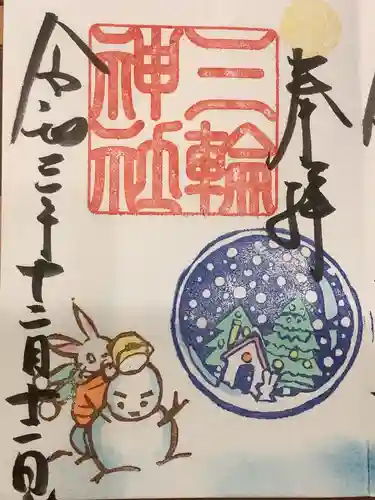 奉拝
三輪
神社
令和三年十二月十一日